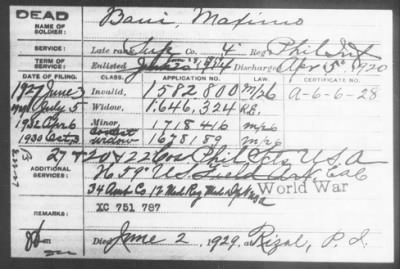 DEAD
NAME OF SOLDIER: Bani, Maximo
SERVICE: Late rank Co. 4" Reg Phil Inf
TERM OF SERVICE: Enlisted 1914 Discharged Apr 5" 1920
DATE OF FILING. CLASS. APPLICATION NO. CERTIFICATE NO.
1927 June 3 Invalid, 1582800 m/26 A-6-6-28
July 5 Widow, 1,646,324
1932 Apr 6 Minor, 1718416 m/26
1930 Oct 3 widow 1678189 m/26
ADDITIONAL SERVICES: 27 + 20 + 22 Cos Phil Sc, U.S.A
Field Art
34 Amb Co 12 Med Reg
World War
REMARKS: XC 751 787
Died June 2, 1929, at Rizal, P. I.